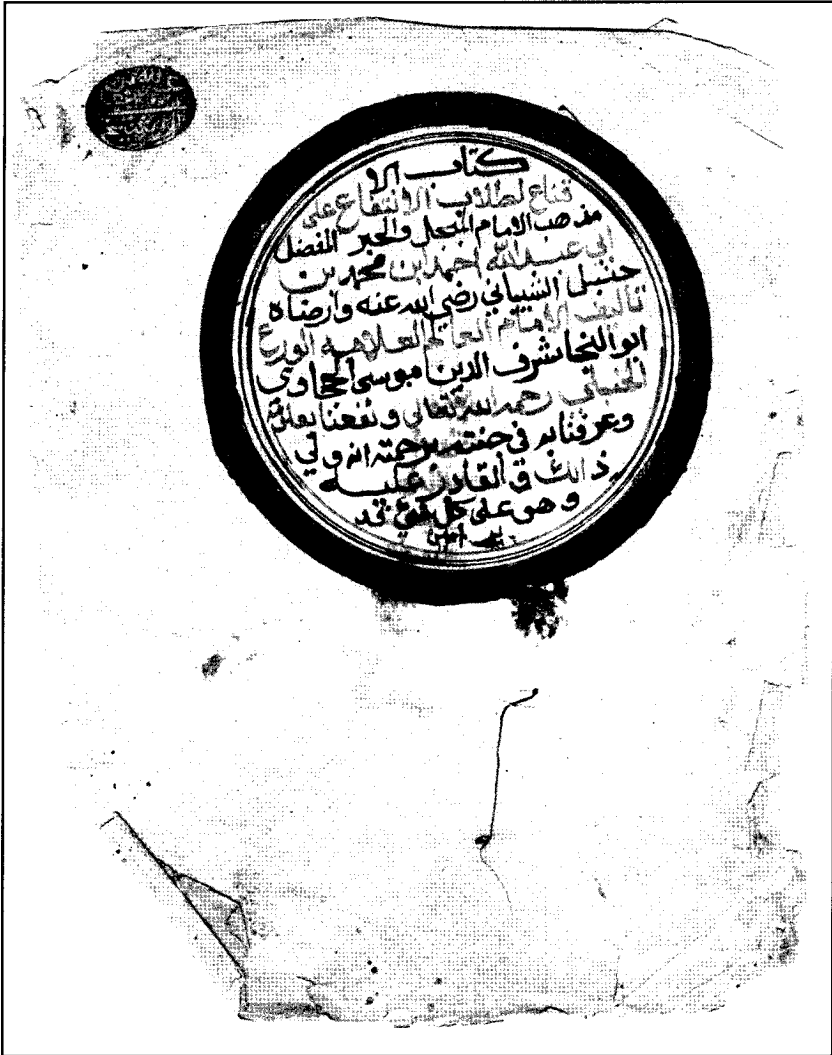 كتاب الا
قناع لطلاب الانتفاع على
مذهب الامام المبجل والحبر المفضل
ابي عبدالله احمد ابن محمد بن
حنبل الشيباني رضي الله عنه وارضاه
تاليف الامام العالم العلامه الورع
ابو النجا شرف الدين موسى الحجاوي
الحنبلي رحمه الله تعالى ونفعنا بعلمه
وعرفنا به في جنته برحمته انه ولي
ذالك و القادر عليه
وهو على كل شئ قد
ير امين